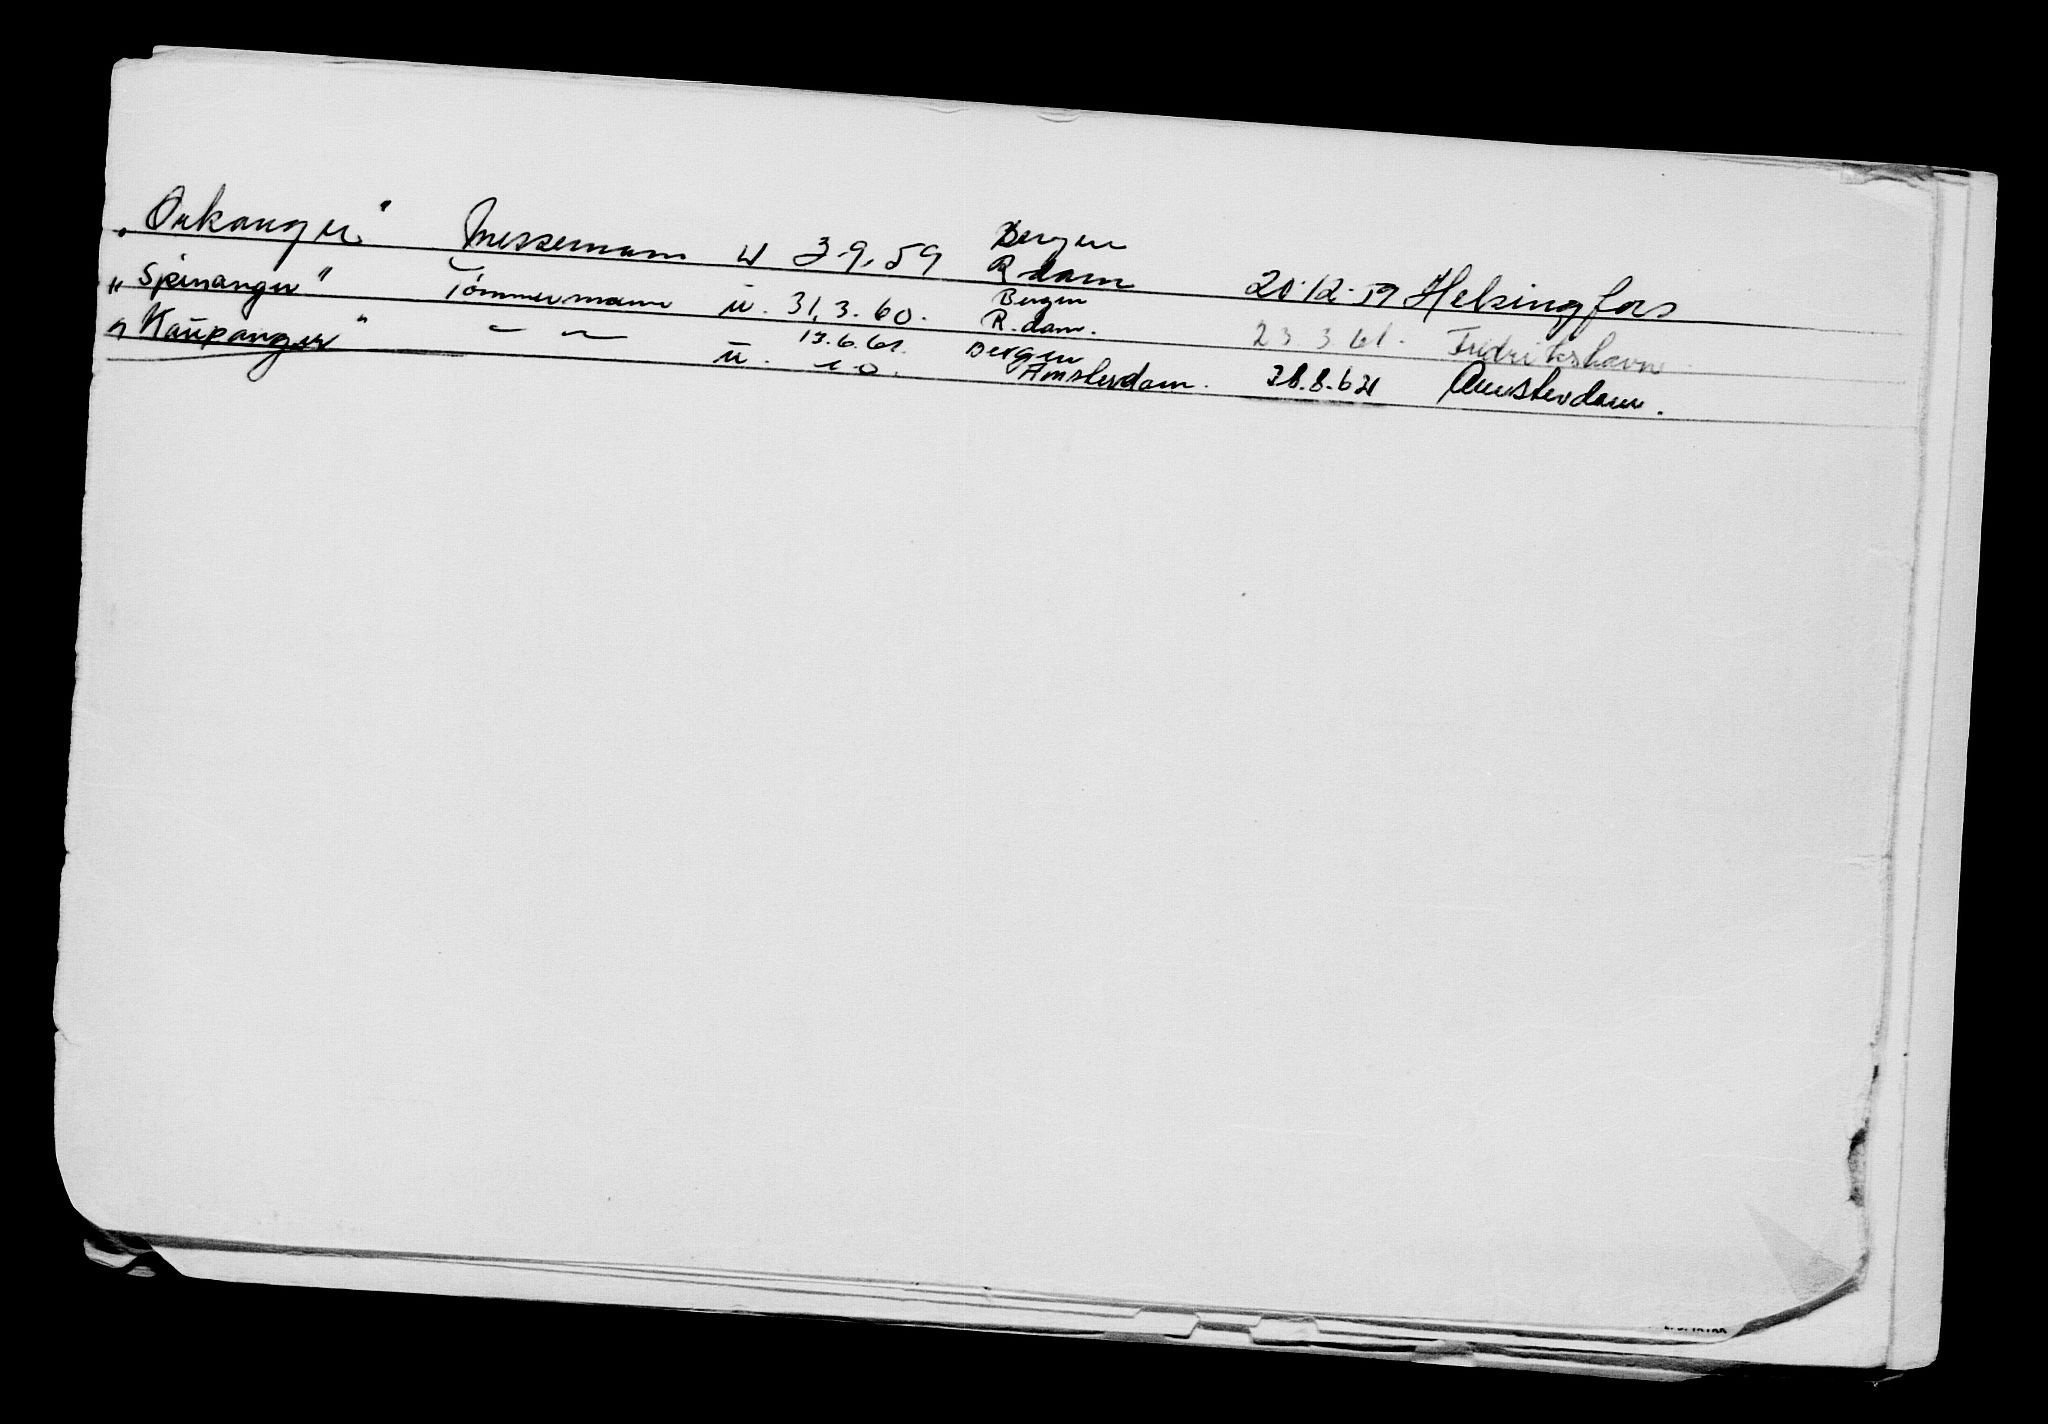 „Orkanger" Messemann u 3.9.59 Bergen R.dam 20.12.59 Helsingfors
„Spinanger" Tømmermann u. 31.3.60. Bergen R.dam. 23.3.61. Fredrikshavn
„Kaupanger" — — u. 13.6.61. Bergen Amsterdam. 28.8.62 Amsterdam.